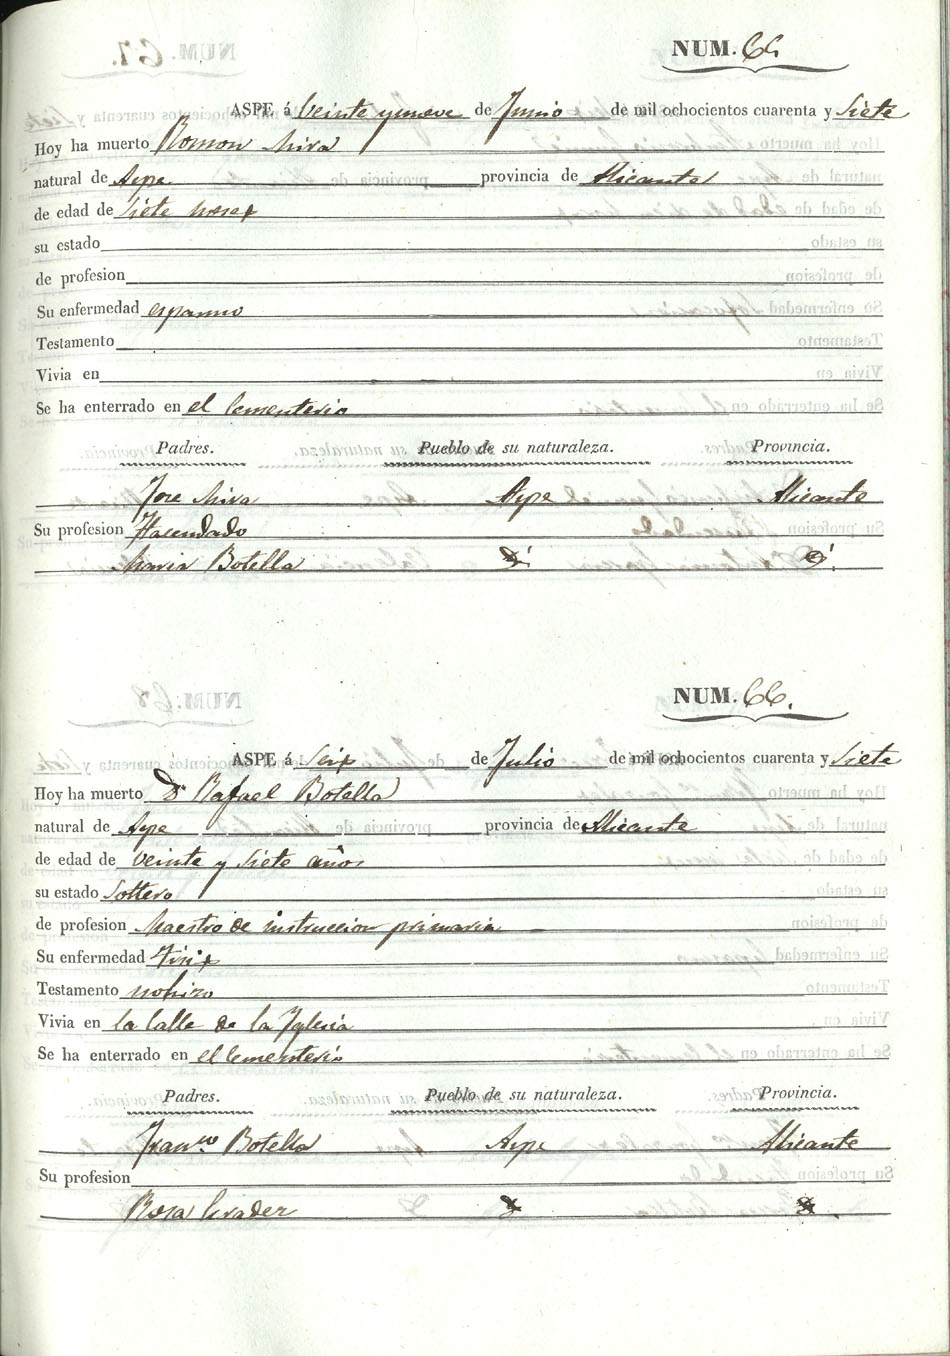 NUM. 66
ASPE á Veinte y nueve de Junio de mil ochocientos cuarenta y Siete
Hoy ha muerto Ramon Mira
natural de Aspe provincia de Alicante
de edad de Siete meses
su estado
de profesion
Su enfermedad espasmo
Testamento
Vivia en
Se ha enterrado en el Cementerio
Padres. Pueblo de su naturaleza. Provincia.
Jose Mira Aspe Alicante
Su profesion Hacendado
Maria Botella Yd. Yd.
NUM. 66.
ASPE á Seis de Julio de mil ochocientos cuarenta y Siete
Hoy ha muerto Dn Rafael Botella
natural de Aspe provincia de Alicante
de edad de Veinte y Siete años
su estado Soltero
de profesion Maestro de instruccion primaria
Su enfermedad Tisis
Testamento no hizo
Vivia en la Calle de la Yglesia
Se ha enterrado en el Cementerio
Padres. Pueblo de su naturaleza. Provincia.
Franco. Botella Aspe Alicante
Su profesion
Rosa